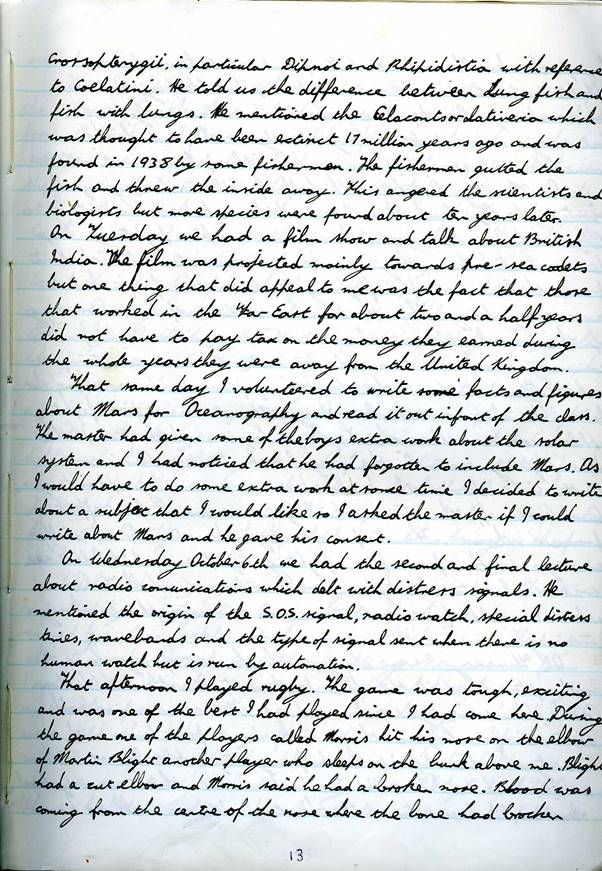 Crossopterygii, in particular Dipnoi and Rhipidistia with reference
to Coelatini. He told us the difference between Lung fish and
fish with lungs. He mentioned the which
was thought to have been extinct 17 million years ago and was
found in 1938 by some fishermen. The fishermen gutted the
fish and threw the inside away. This angered the scientists and
biologists but more species were found about ten years later.
On Tuesday we had a film show and talk about British
India. The film was projected mainly towards pre-sea cadets
but one thing that did appeal to me was the fact that those
that worked in the Far East for about two and a half years
did not have to pay tax on the money they earned during
the whole years they were away from the United Kingdom.
That same day I volunteered to write some facts and figures
about Mars for Oceanography and read it out infront of the class.
The master had given some of the boys extra work about the solar
system and I had noticed that he had forgotten to include Mars. As
I would have to do some extra work at some time I decided to write
about a subject that I would like so I asked the master if I could
write about Mars and he gave his consect.
On Wednesday October 6th we had the second and final lecture
about radio comunications which delt with distress signals. He
mentioned the origin of the S.O.S. signal, radio watch, special distress
times, wavebands and the type of signal sent when there is no
human watch but is run by automation.
That afternoon I played rugby. The game was tough, exciting
and was one of the best I had played since I had come here. During
the game one of the players called Morris hit his nose on the elbow
of Martin Blight another player who sleeps on the bunk above me. Blight
had a cut elbow and Morris said he had a broken nose. Blood was
coming from the centre of the nose where the bone had brocken
13